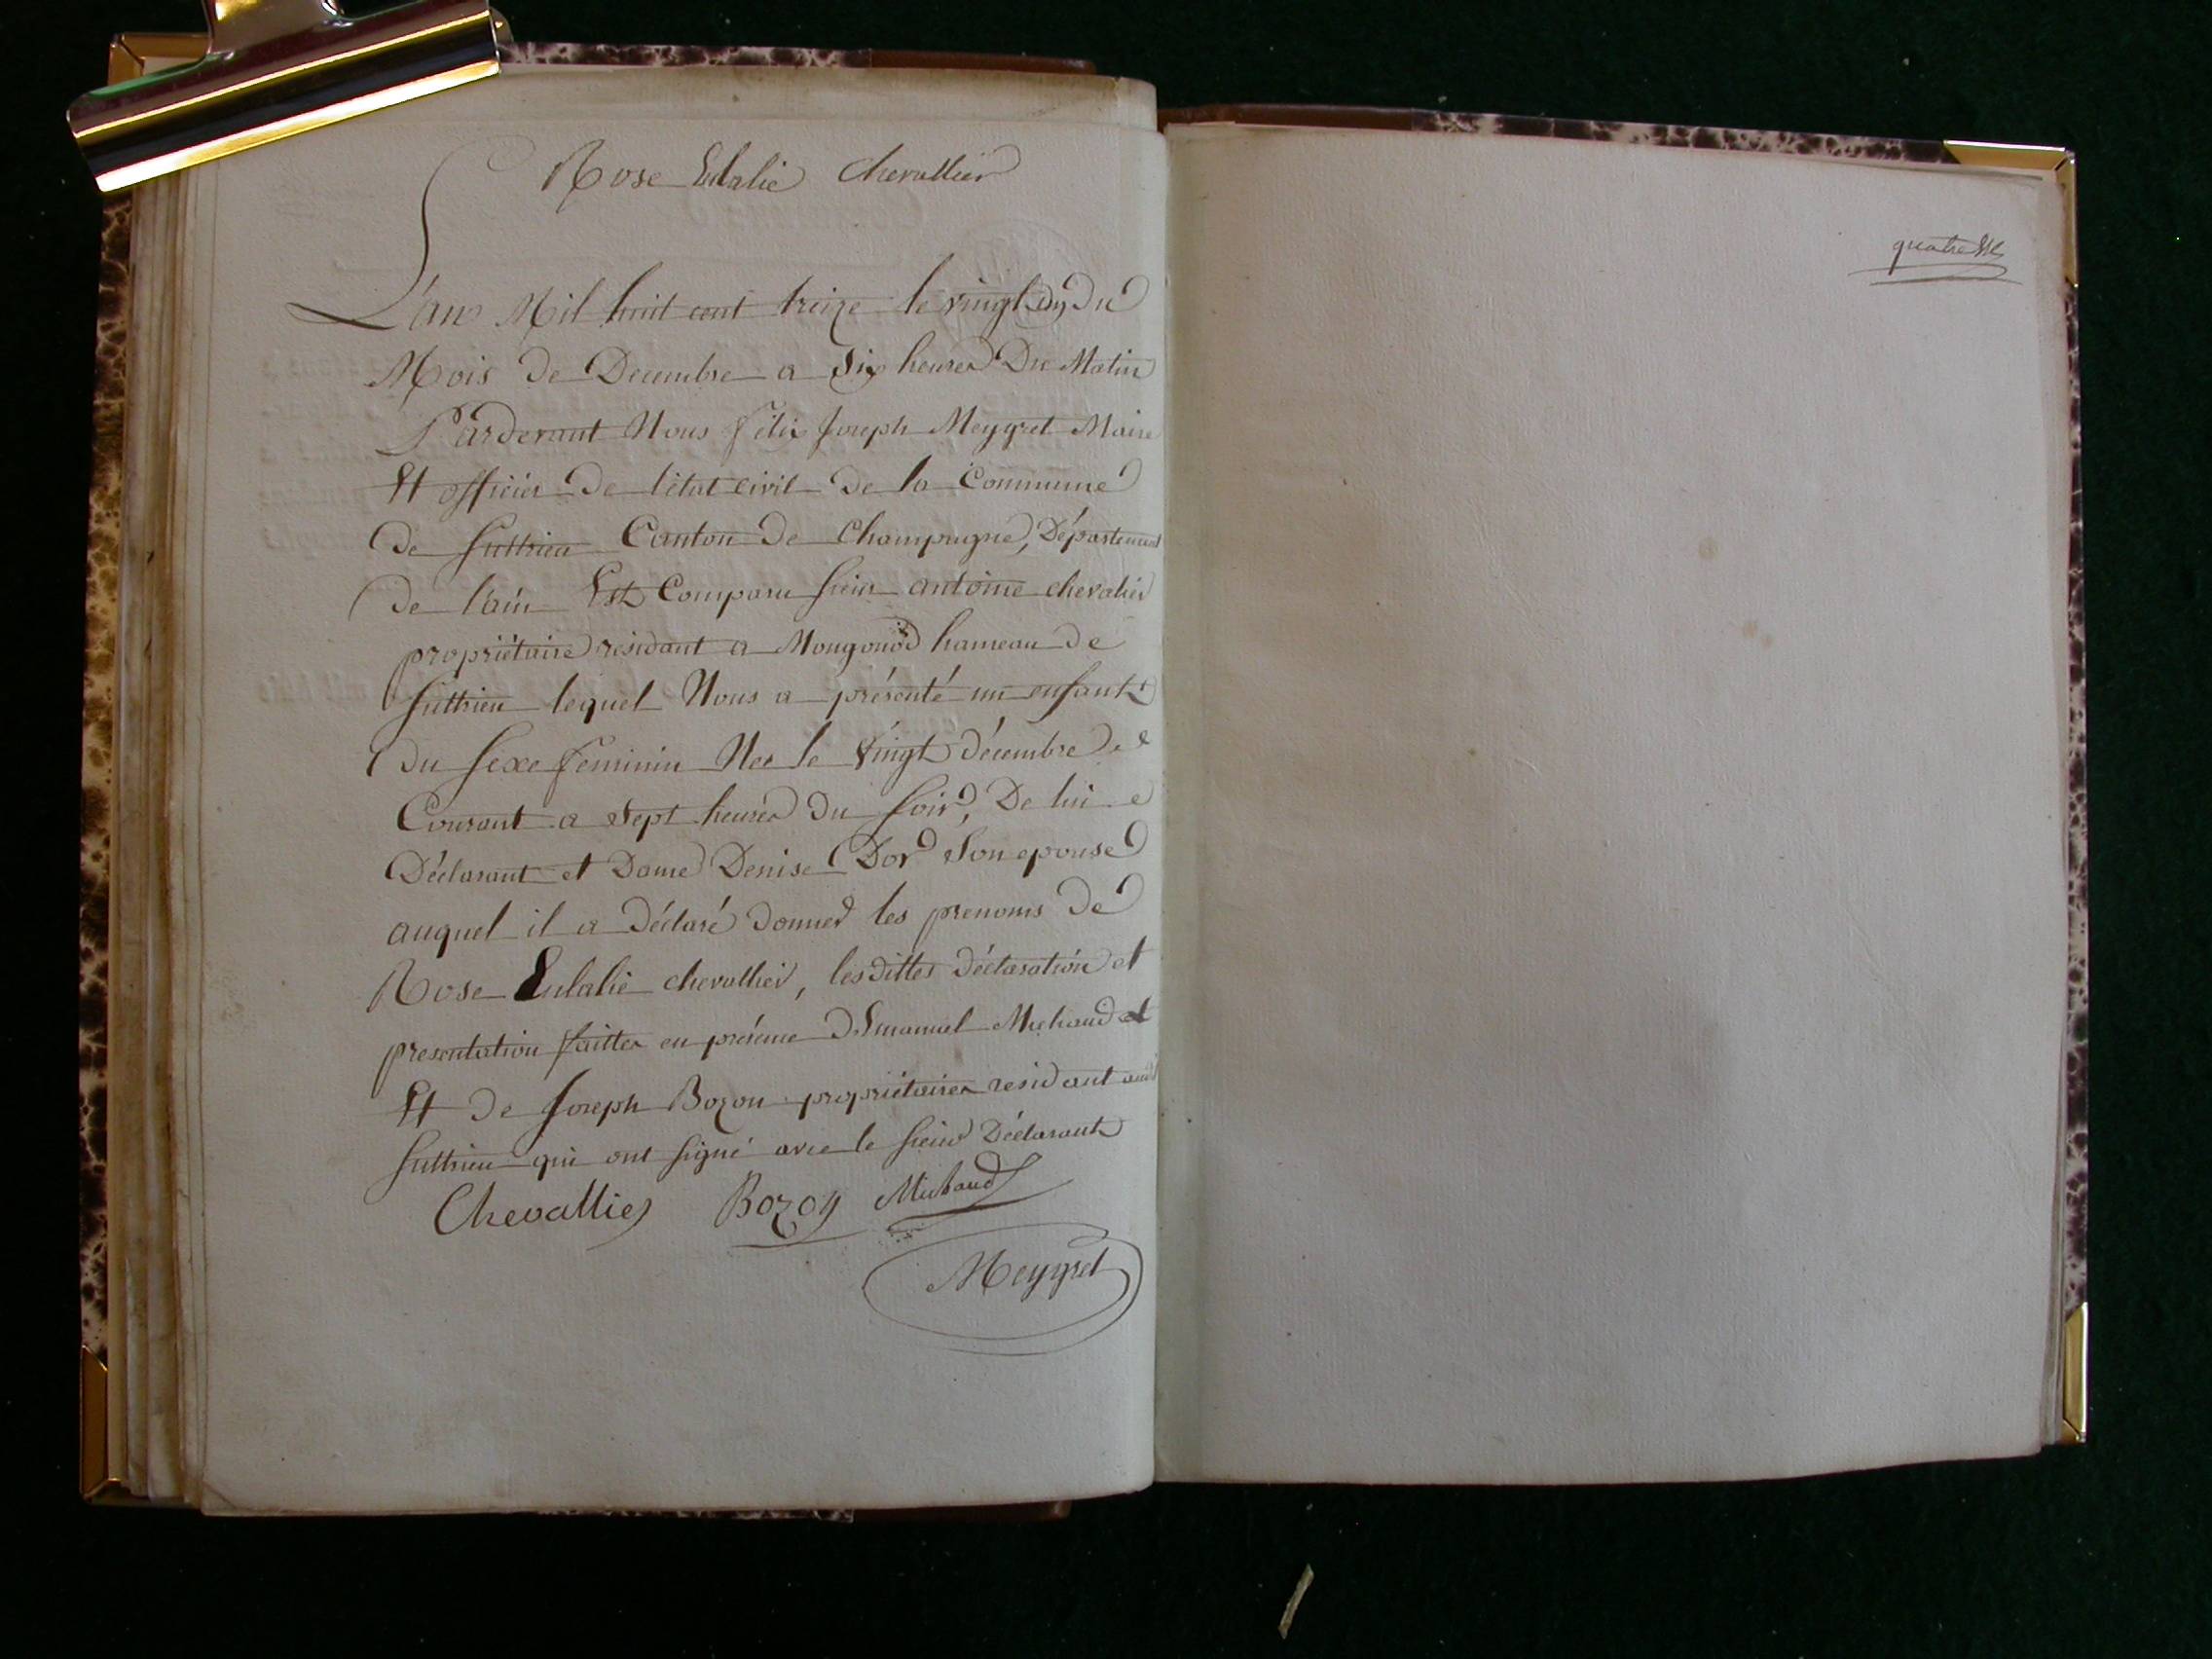 Rose Eulalie Chevallier
L'an Mil huit cent treize le vingt du
Mois de Decembre a six heures Du Matin
Pardevant Nous Félix Joseph Meygret Maire
Et officier De l'état civil De la Commune
De Suthrieu Canton De Champagne, Département
De l'ain Est Comparu Sieur antoine chevalier
propriétaire residant a Mongonod hameau De
Suthrieu lequel Nous a présenté un enfant
Du Sexe féminin Née le Vingt décembre
Courant a sept heures Du Soir, De lui
Déclarant et Dame Denise Dor Son epouse
auquel il a Déclaré Donner les prenoms De
Rose Eulalie chevallier, les dittes Déclaration et
presentation faittes en présence D'Emanuel Michaud et
Et De Joseph Bozon propriétaires residant
Suthrieu qui ont signé avec le Sieur Déclarant
Chevallier Bozon Michaud
Meygret
quatre